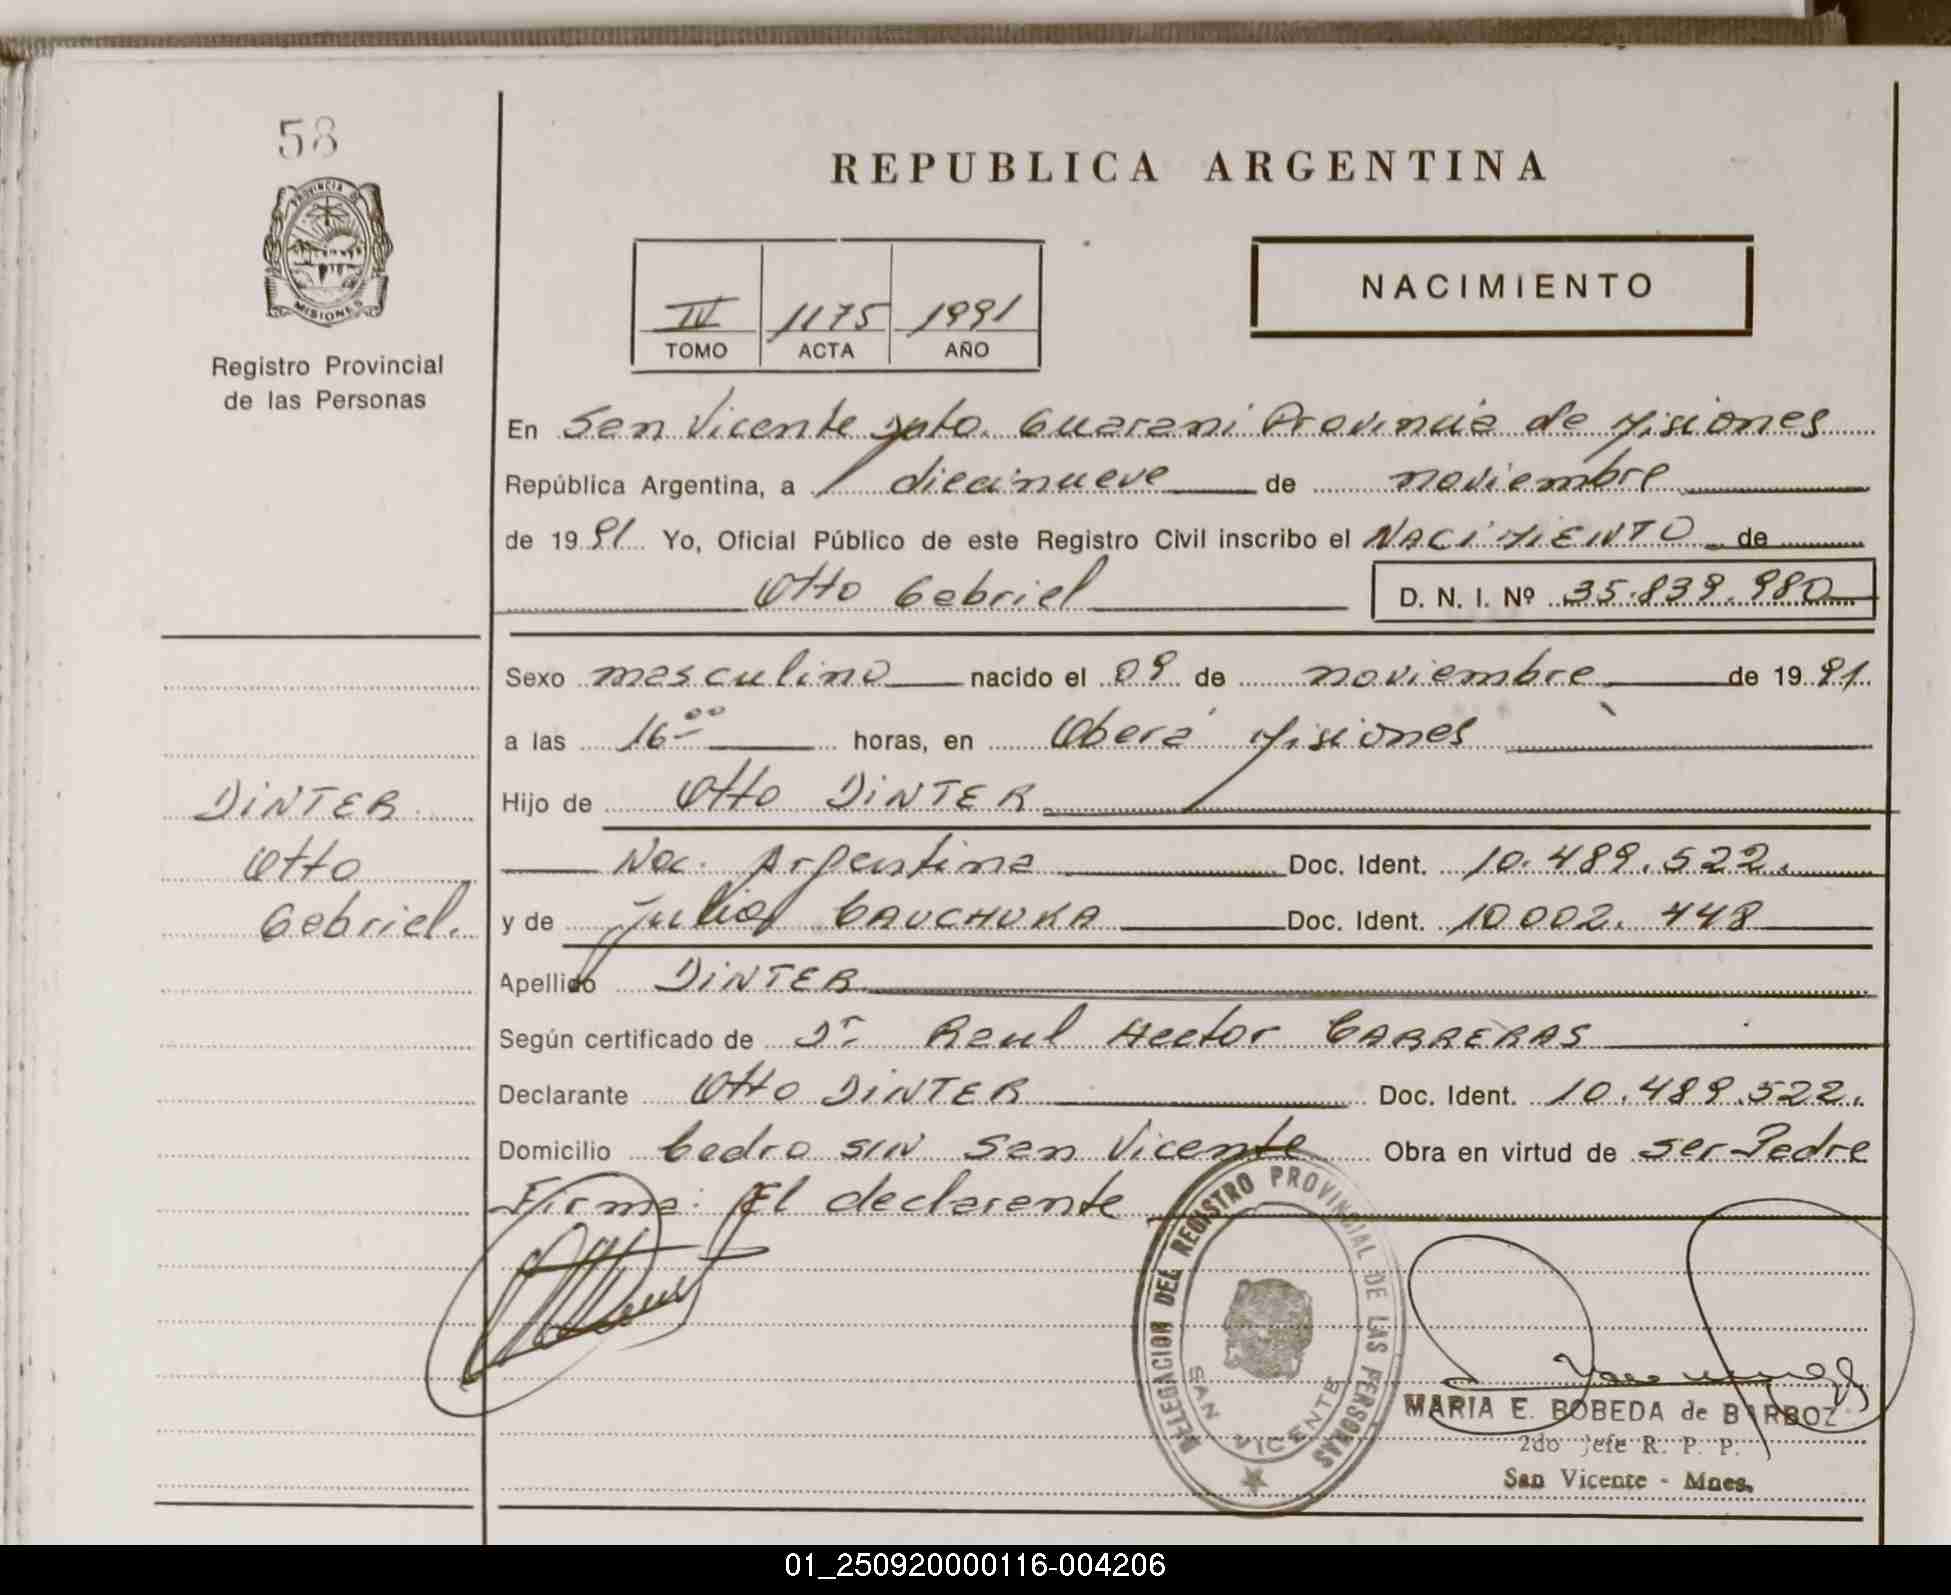 58
PROVINCIA DE
MISIONES
Registro Provincial
de las Personas
REPUBLICA ARGENTINA
IV 1175 1991
TOMO ACTA AÑO
NACIMIENTO
En San Vicente Dpto. Guarani Provincia de Misiones
República Argentina, a diecinueve de noviembre
de 1991 Yo, Oficial Público de este Registro Civil inscribo el NACIMIENTO de
Otto Gabriel D. N. I. Nº 35.839.980
Sexo masculino nacido el 09 de noviembre de 1991
a las 16 00 horas, en Oberá Misiones
DINTER
Otto
Gabriel.
Hijo de Otto DINTER
Nac. Argentina Doc. Ident. 10.489.522.
y de Julia GAUCHUKA Doc. Ident. 10.002.448
Apellido DINTER
Según certificado de Dr. Raul Hector CARRERAS
Declarante Otto DINTER Doc. Ident. 10.489.522.
Domicilio Cedro S/N San Vicente Obra en virtud de ser Padre
Firma: El declarante
DELEGACION DEL REGISTRO PROVINCIAL DE LAS PERSONAS
SAN VICENTE
MARIA E. BOBEDA de BARBOZ
2do Jefe R. P. P.
San Vicente - Mnes.
01_250920000116-004206